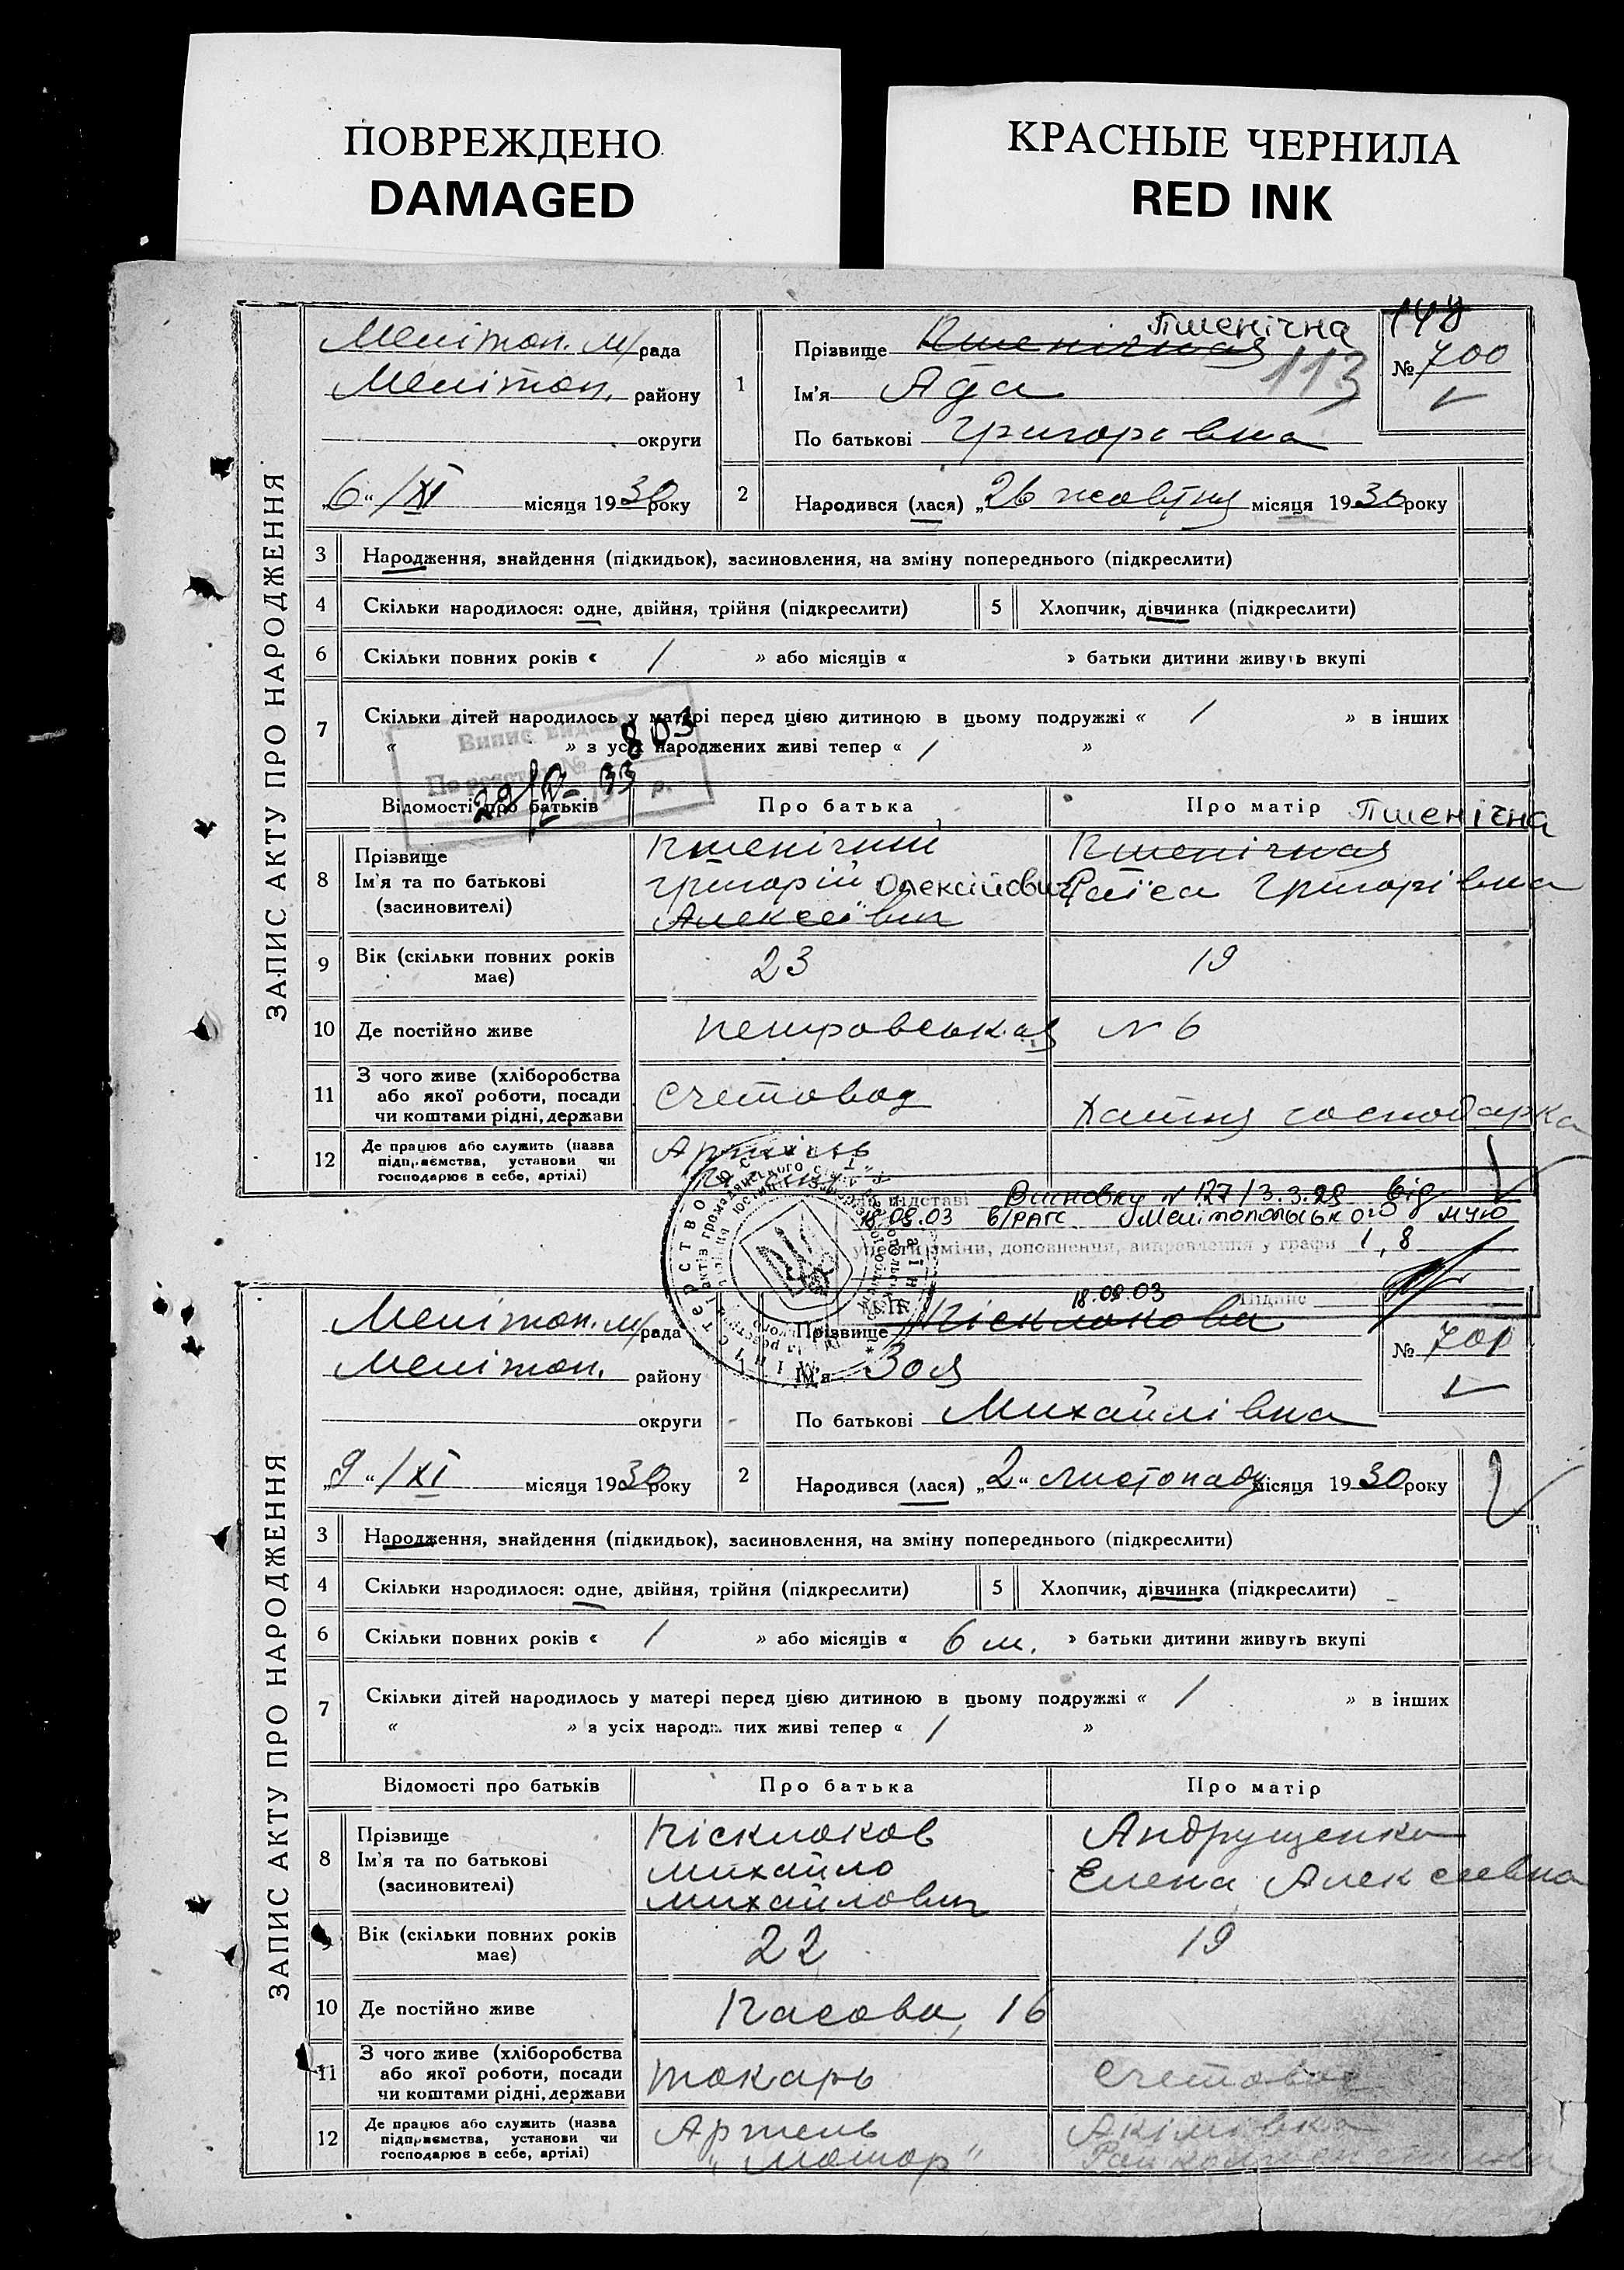 ПОВРЕЖДЕНО
DAMAGED
КРАСНЫЕ ЧЕРНИЛА
RED INK
ЗАПИС АКТУ ПРО НАРОДЖЕННЯ
Мелітоп. м/рада
Мелітоп. району
округи
„6“ /XI місяця 1930 року
1
Пшенічна
Прізвище Пшенічная
113
Ім'я Ада
По батькові Григорівна
№ 700
2 Народився (лася) „26 жовтня місяця 1930 року
3 Народження, знайдення (підкидьок), засиновлення, на зміну попереднього (підкреслити)
4 Скільки народилося: одне, двійня, трійня (підкреслити) 5 Хлопчик, дівчинка (підкреслити)
6 Скільки повних років « 1 » або місяців « » батьки дитини живуть вкупі
7 Скільки дітей народилось у матері перед цією дитиною в цьому подружжі « 1 » в інших
« » з усіх народжених живі тепер « 1 »
Випис видано
803
По реєстру №
33 р.
Відомості про батьків Про батька Про матір
Пшенічна
8 Прізвище
Ім'я та по батькові
(засиновителі)
Пшенічний
Григорій Олексійович
Алексеївич
Пшенічная
Раїса Григорівна
9 Вік (скільки повних років має) 23 19
10 Де постійно живе Петровская N 6
11 З чого живе (хліборобства
або якої роботи, посади
чи коштами рідні, держави
Счетовод Хатня господарка
12 Де працює або служить (назва
підприємства, установи чи
господарює в себе, артілі)
Артіль
підставі Висновку N 127/3.3.28 від
18.09.03 в/РАГС Мелітопольського МУЮ
унести зміни, доповнення, виправлення у графи 1, 8
18.09.03 Підпис
ЗАПИС АКТУ ПРО НАРОДЖЕННЯ
Мелітоп. м/рада
Мелітоп. району
округи
„9“ /XI місяця 1930 року
Прізвище Кісклокова
Ім'я Зоя
По батькові Михайлівна
№ 701
2 Народився (лася) „2“ листопаду місяця 1930 року
3 Народження, знайдення (підкидьок), засиновлення, на зміну попереднього (підкреслити)
4 Скільки народилося: одне, двійня, трійня (підкреслити) 5 Хлопчик, дівчинка (підкреслити)
6 Скільки повних років « 1 » або місяців « 6 м. » батьки дитини живуть вкупі
7 Скільки дітей народилось у матері перед цією дитиною в цьому подружжі « 1 » в інших
« » з усіх народжених живі тепер « 1 »
Відомості про батьків Про батька Про матір
8 Прізвище
Ім'я та по батькові
(засиновителі)
Кісклоков
Михайло
Михайлович
Андрущенко
Елена Алексеевна
9 Вік (скільки повних років має) 22 19
10 Де постійно живе Касова, 16
11 З чого живе (хліборобства
або якої роботи, посади
чи коштами рідні, держави
токарь счетовод
12 Де працює або служить (назва
підприємства, установи чи
господарює в себе, артілі)
Артель
„Мотор“
Акімівка